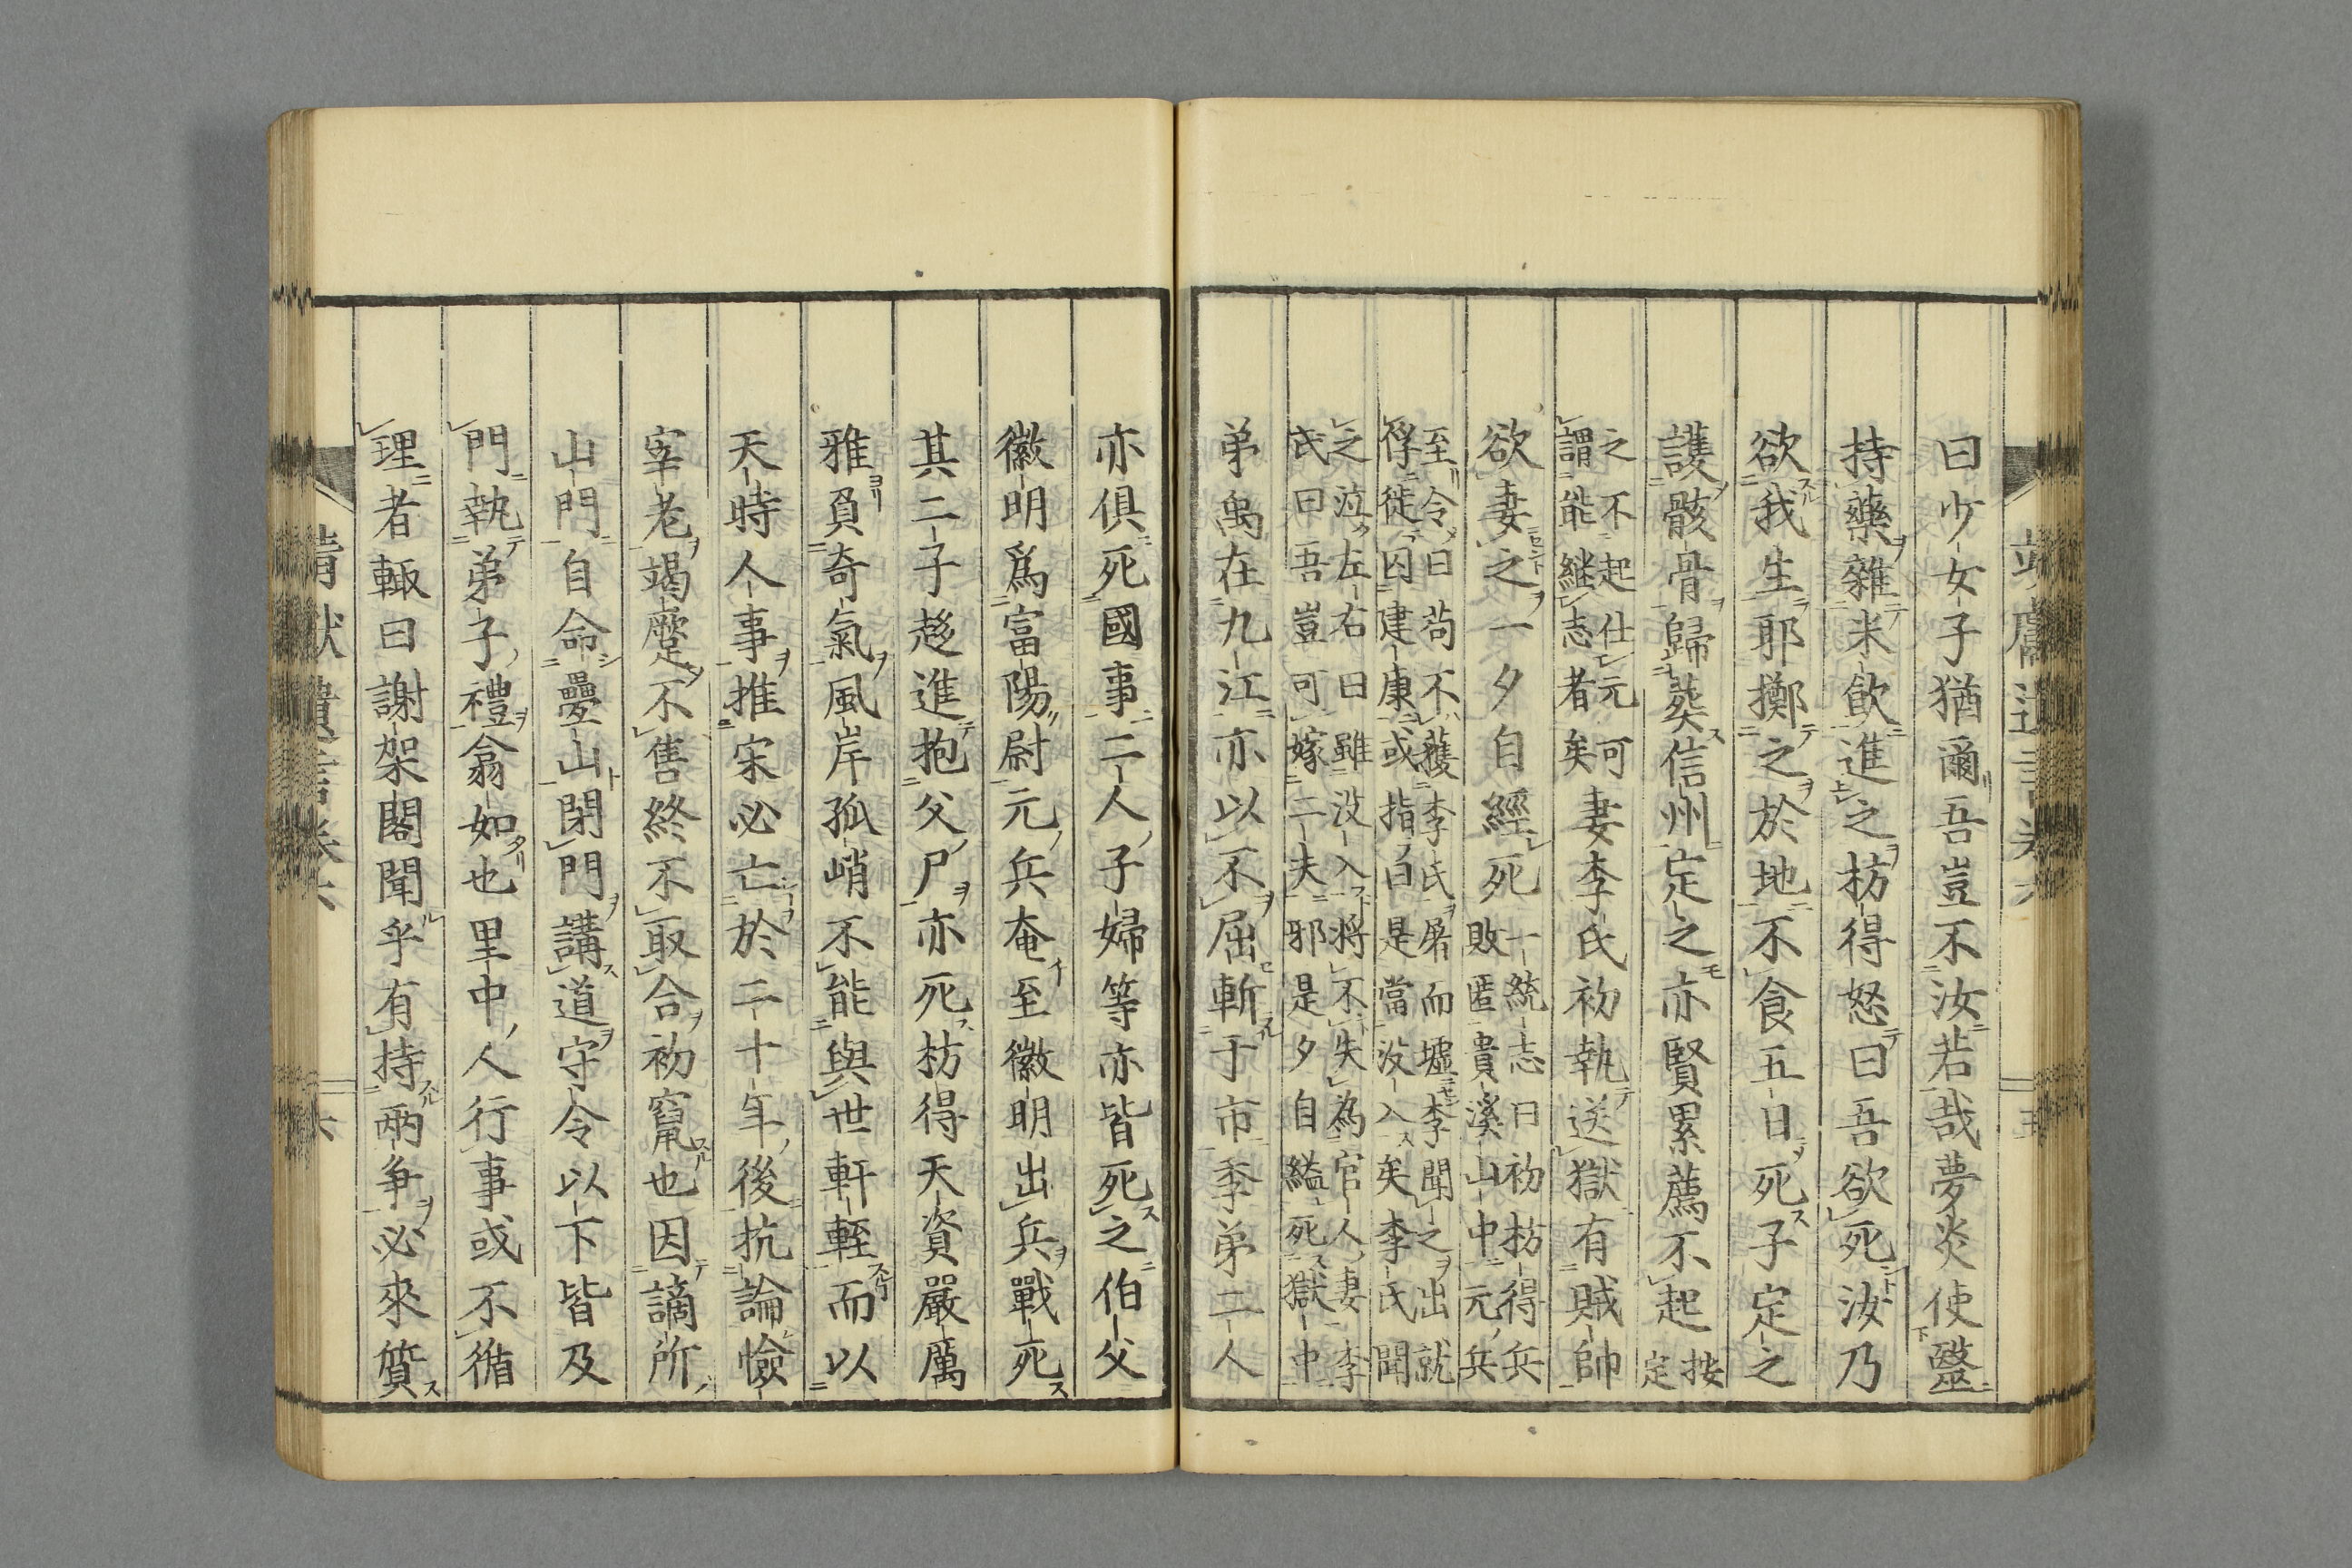 曰少女子猶爾吾豈不汝若哉夢炎使毉
持藥雜米飲進之枋得怒曰吾欲死汝乃
欲我生耶擲之於地不食五日死子定之
護骸骨歸葬信州定之亦賢累薦不起按定
之不起仕元可
謂能継志者矣
妻李氏初執送獄有賊帥
欲妻之一夕自經死
一統志曰初枋得兵
敗匿貴溪山中元兵
至令曰苟不獲李氏屠而墟李聞之出就
俘徙囚建康或指曰是當没入矣李氏聞
之泣左右曰雖没入將不失為官人妻李
氏曰吾豈可嫁二夫邪是夕自縊死獄中
弟禹在九江亦以不屈斬于市季弟二人
亦俱死國事二人子婦等亦皆死之伯父
徽明爲富陽尉元兵奄至徽明出兵戰死
其二子趍進抱父尸亦死枋得天資嚴厲
雅負奇氣風岸孤峭不能與世軒輊而以
天時人事推宋必亡於二十年後抗論憸
宰老竭蹷不售終不取合初竄也因謫所
山門自命疊山閉門講道守令以下皆及
門執弟子禮翕如也里中人行事或不循
理者輙曰謝架閣聞乎有持兩爭必來質